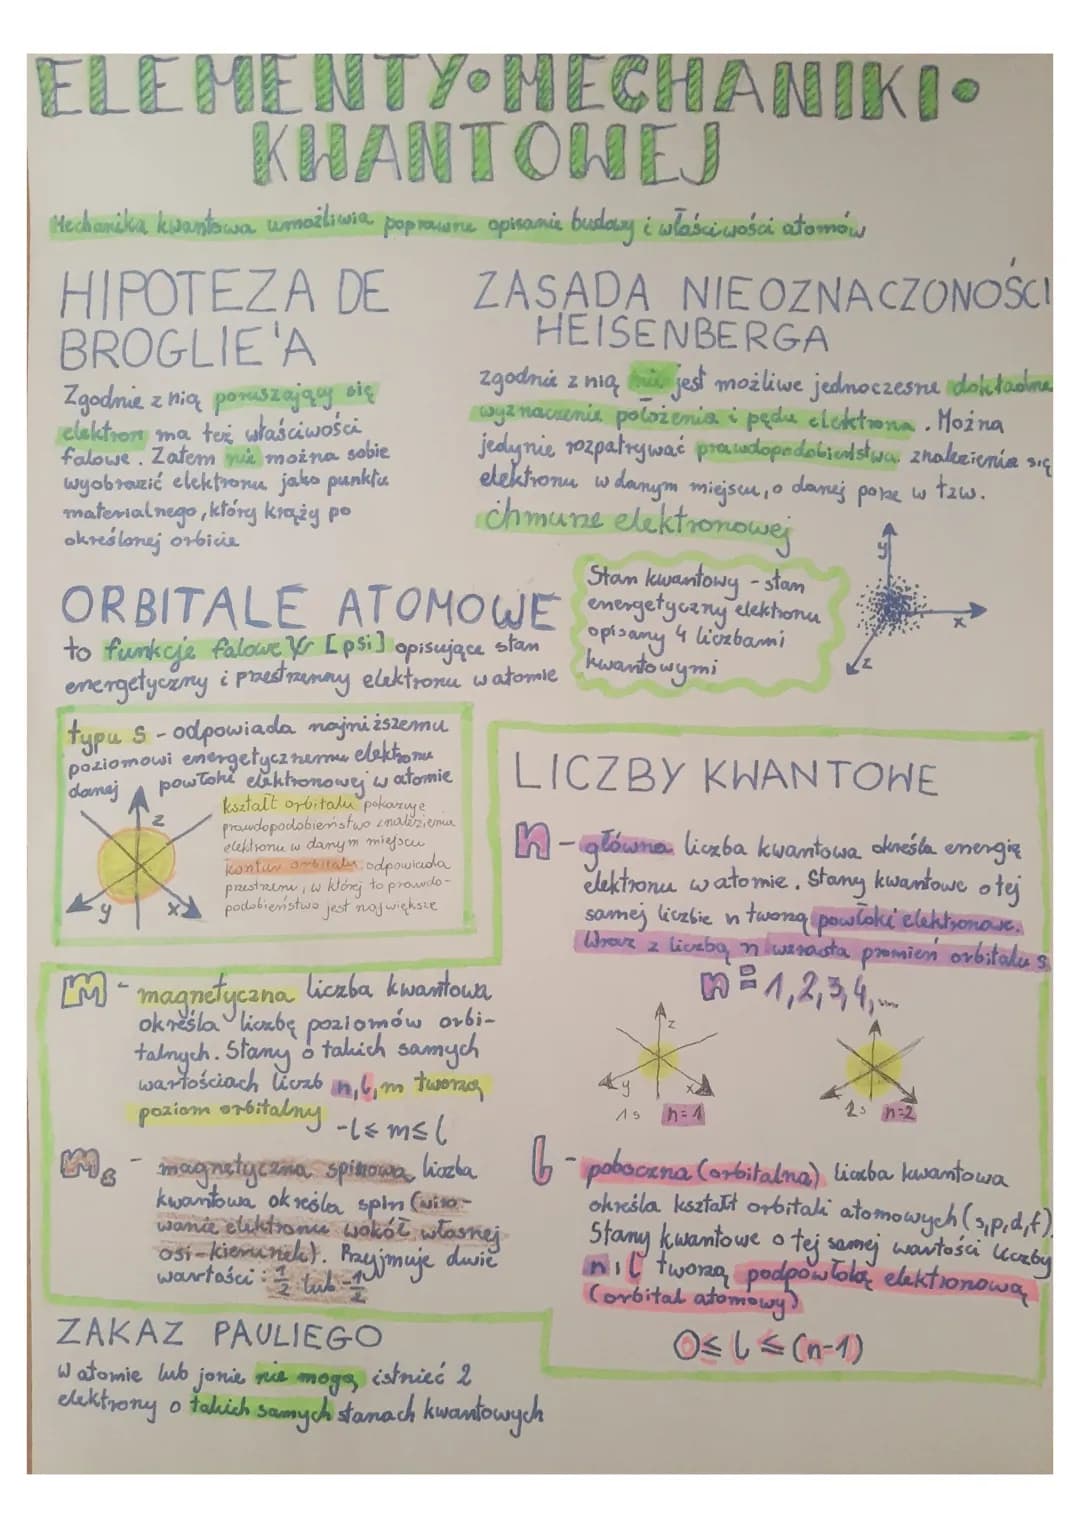 ELEMENTY•MECHANIKI•
KWANTOWEJ
Mechanika kwantowa umożliwia poprawne opisanie budowy i właściwości atomów
HIPOTEZA DE
BROGLIE'A
Zgodnie z nią poruszający się
elektron ma też właściwości
falowe. Zatem nie można sobie
wyobrazić elektronu jako punktu
materialnego, który krąży po
określonej orbicie
ZASADA NIEOZNACZONOŚCI
HEISENBERGA
zgodnie z nią nie jest możliwe jednoczesne dokładne
wyznaczenie położenia i pędu elektrona. Można
jedynie rozpatrywać prawdopodobieństwa znalezienia się
elektronu w danym miejscu, o danej porze w tzw.
chmurze elektronowej
y
x
z
Stan kwantowy - stan
energetyczny elektronu
opisany 4 liczbami
kwantowymi
ORBITALE ATOMOWE
to funkcje falowe Ψ [psi] opisujące stan
energetyczny i przestrzenny elektronu w atomie
typu s - odpowiada najniższemu
poziomowi energetycznemu elektronu
danej powłoki elektronowej w atomie
z
y
x
kształt orbitalu pokazuje
prawdopodobieństwo znalezienia
elektronu w danym miejscu
kontur orbitalu odpowiada
przestrzeni, w której to prawdo-
podobieństwo jest największe
LICZBY KWANTOWE
n - główna liczba kwantowa określa energię
elektronu w atomie. Stany kwantowe o tej
samej liczbie n tworzą powłoki elektronowe.
Wraz z liczbą n wzrasta promień orbitalu s
n = 1,2,3,4,...
z
y
x
1s n=1
2s n=2
l - poboczna (orbitalna) liczba kwantowa
określa kształt orbitali atomowych (s,p,d,f).
Stany kwantowe o tej samej wartości liczby
n i l tworzą podpowłokę elektronową
(orbital atomowy)
0≤ l ≤ (n-1)
m - magnetyczna liczba kwantowa
określa liczbę poziomów orbi-
talnych. Stany o takich samych
wartościach liczb n, l, m tworzą
poziom orbitalny
-l ≤ m ≤ l
ms - magnetyczna spinowa liczba
kwantowa określa spin (wiro-
wanie elektronu wokół własnej
osi - kierunek). Przyjmuje dwie
wartości: 1/2 lub -1/2
ZAKAZ PAULIEGO
W atomie lub jonie nie mogą istnieć 2
elektrony o takich samych stanach kwantowych